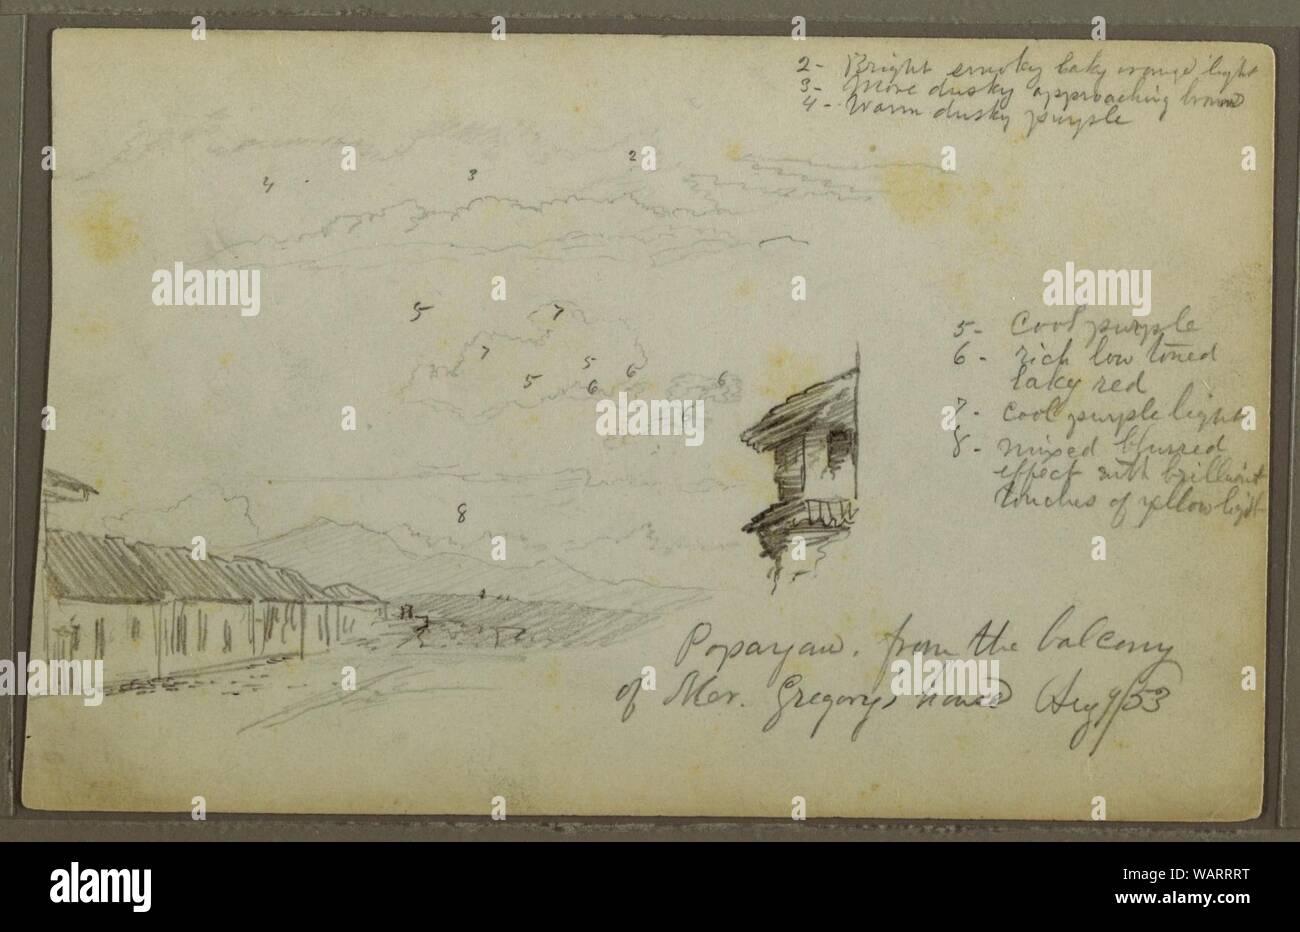 2- Bright smoky laky orange light
3- More dusky approaching brown
4- Warm dusky purple
2
4 3
5 7
7 5 6
5 6 6
6
5- Cool purple
6- rich low toned
laky red
7- cool purple light
8- mixed blurred
effect with brilliant
touches of yellow light
8
Popayan. from the balcony
of Mr. Gregorys house Aug 9/53
a alamy
alamy
Image ID: WARRRT
www.alamy.com